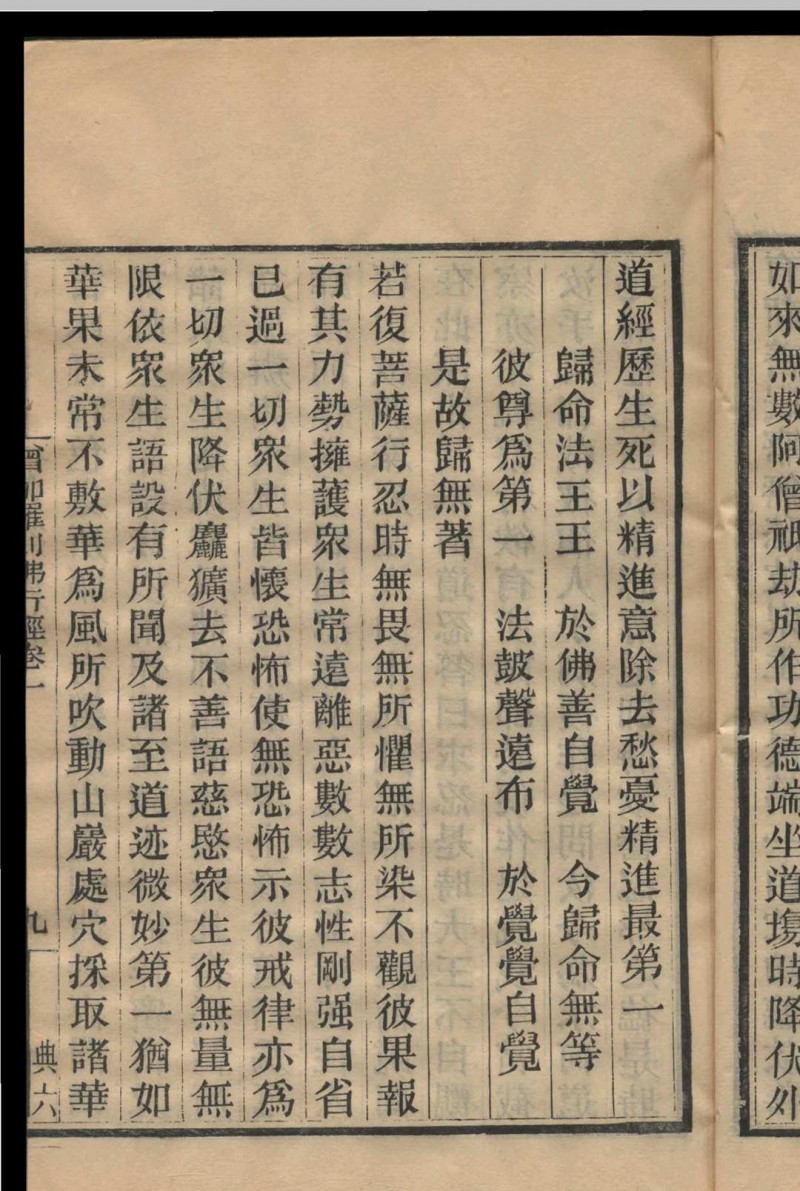 如來無數阿僧祇劫所作功德端坐道塲時降伏外
道經歷生死以精進意除去愁憂精進最第一
歸命法王王　於佛善自覺　今歸命無等
彼尊爲第一　法鼓聲遠布　於覺覺自覺
是故歸無著
若復菩薩行忍時無畏無所懼無所染不觀彼果報
有其力勢擁護衆生常遠離惡數數志性剛强自省
已過一切衆生皆懷恐怖使無恐怖示彼戒律亦爲
一切衆生降伏麤獷去不善語慈愍衆生彼無量無
限依衆生語設有所聞及諸至道迹微妙第一猶如
華果未常不敷華爲風所吹動山巖處穴採取諸華
僧伽羅刹佛行經卷一
九
典六